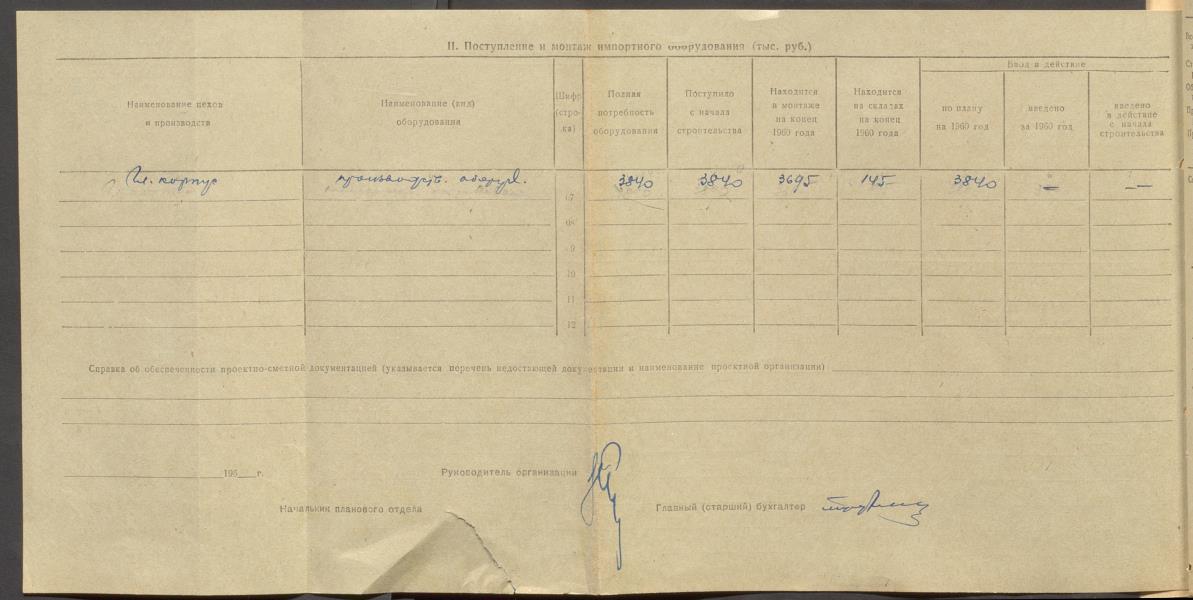 II. Поступление и монтаж импортного оборудования (тыс. руб.)
Наименование цехов и производств
Наименование (вид) оборудования
Шифр (стро-ка)
Полная потребность оборудования
Поступило с начала строительства
Находится в монтаже на конец 1960 года
Находится на складах на конец 1960 года
Ввод в действие
по плану на 1960 год
введено за 1960 год
введено в действие с начала строительства
Гл. корпус производств. оборуд. 3840 3840 3695 145 3840 — —
07
08
9
10
11
12
Справка об обеспеченности проектно-сметной документацией (указывается перечень недостающей документации и наименование проектной организации)
195 г.
Руководитель организации
Начальник планового отдела
Главный (старший) бухгалтер